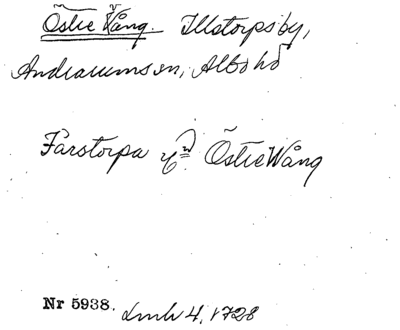 Östre Vång. Illstorps by,
Andrarums sn, Albo hd
Fårstorpa Östre Wång
Nr 5938. Lmh 4, 1728